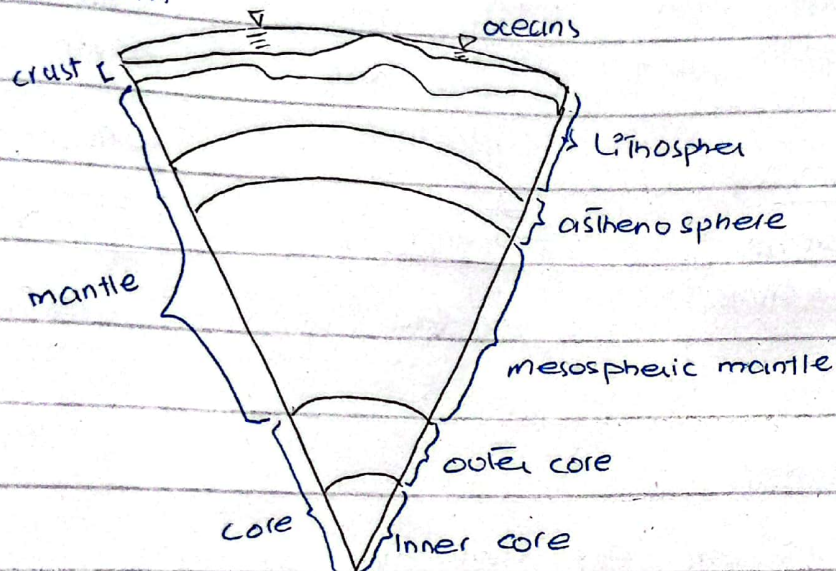 oceans
crust
Lithospher
asthenosphere
mantle
mesospheric mantle
outer core
core
Inner core